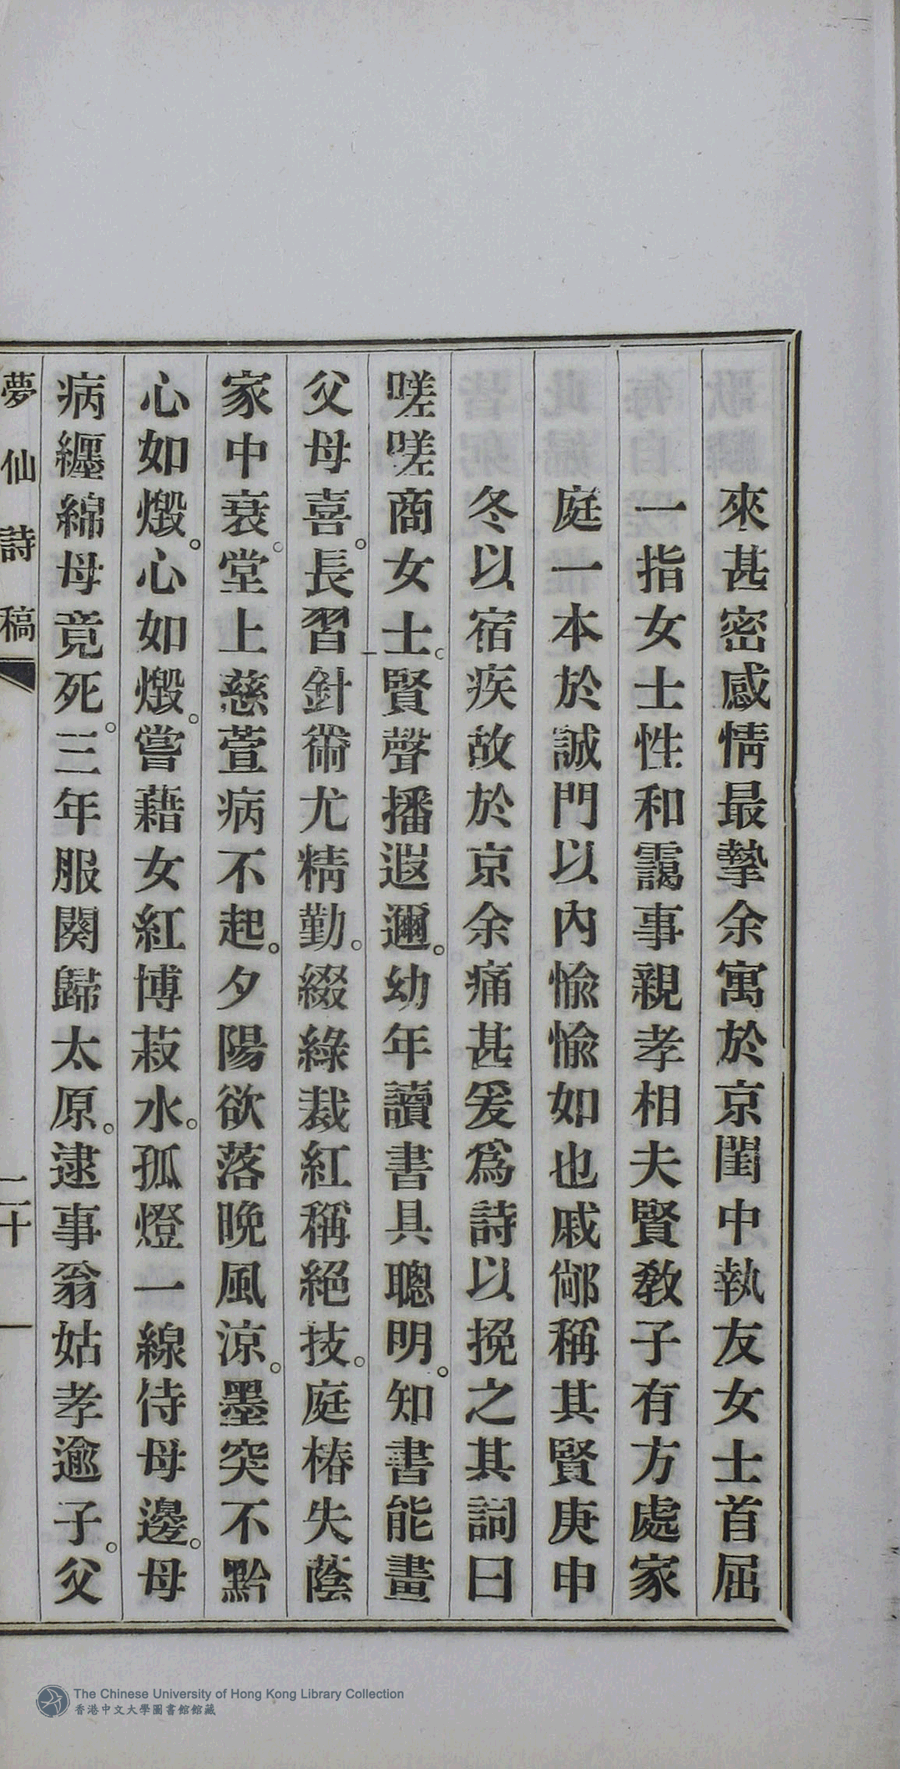 來甚密感情最摯余寓於京閨中執友女士首屈
一指女士性和靄事親孝相夫賢教子有方處家
庭一本於誠門以內愉愉如也戚鄰稱其賢庚申
冬以宿疾故於京余痛甚爰為詩以挽之其詞曰
嗟嗟商女士。賢聲播遐邇。幼年讀書具聰明。知書能畫
父母喜。長習針黹尤精勤。綴綠裁紅稱絕技。庭椿失蔭
家中衰。堂上慈萱病不起。夕陽欲落晚風涼。墨突不黔
心如燬。心如燬。嘗藉女紅博菽水。孤燈一線待母邊。母
病纏綿母竟死。三年服闋歸太原。逮事翁姑孝逾子。父
夢仙詩稿
二十一
The Chinese University of Hong Kong Library Collection
香港中文大學圖書館館藏